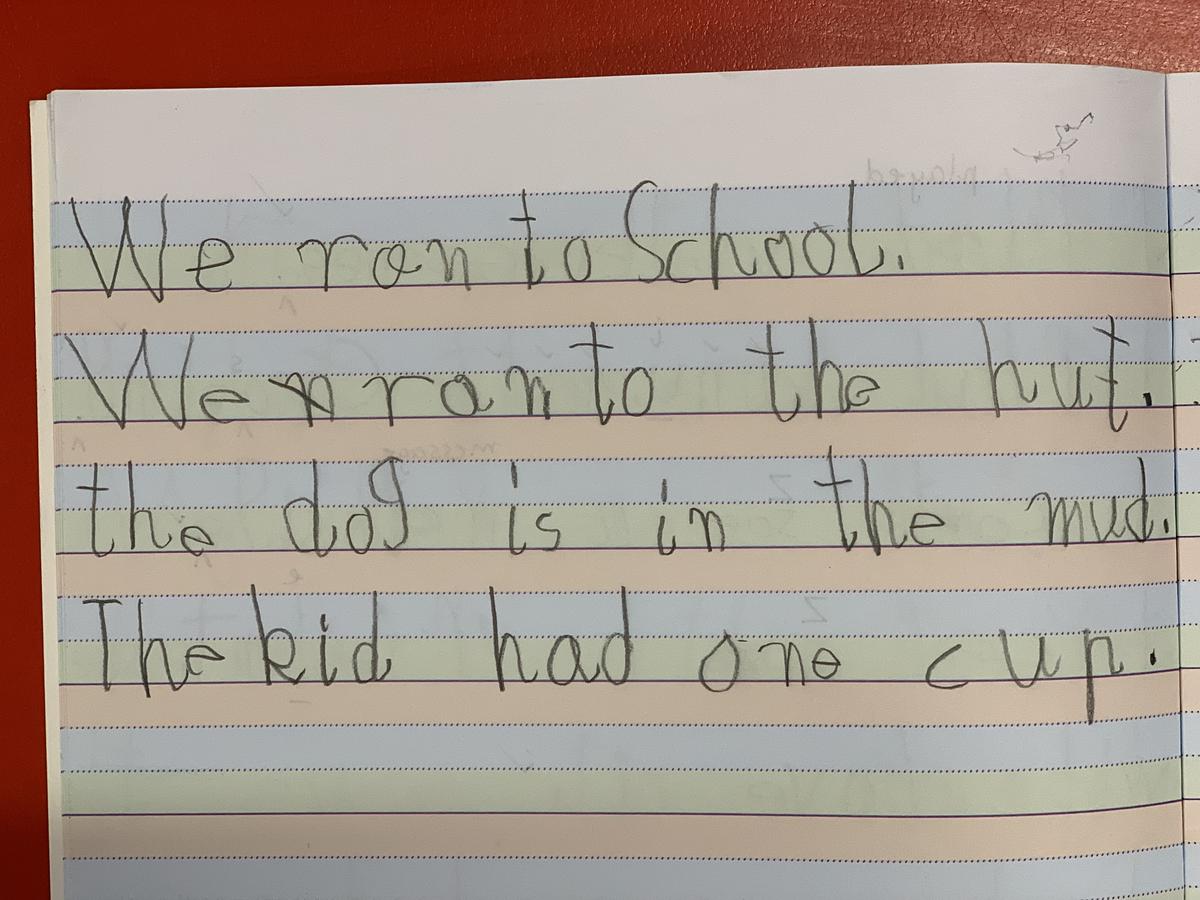 We ran to School.
We ran to the hut.
the dog is in the mud.
The kid had one cup.